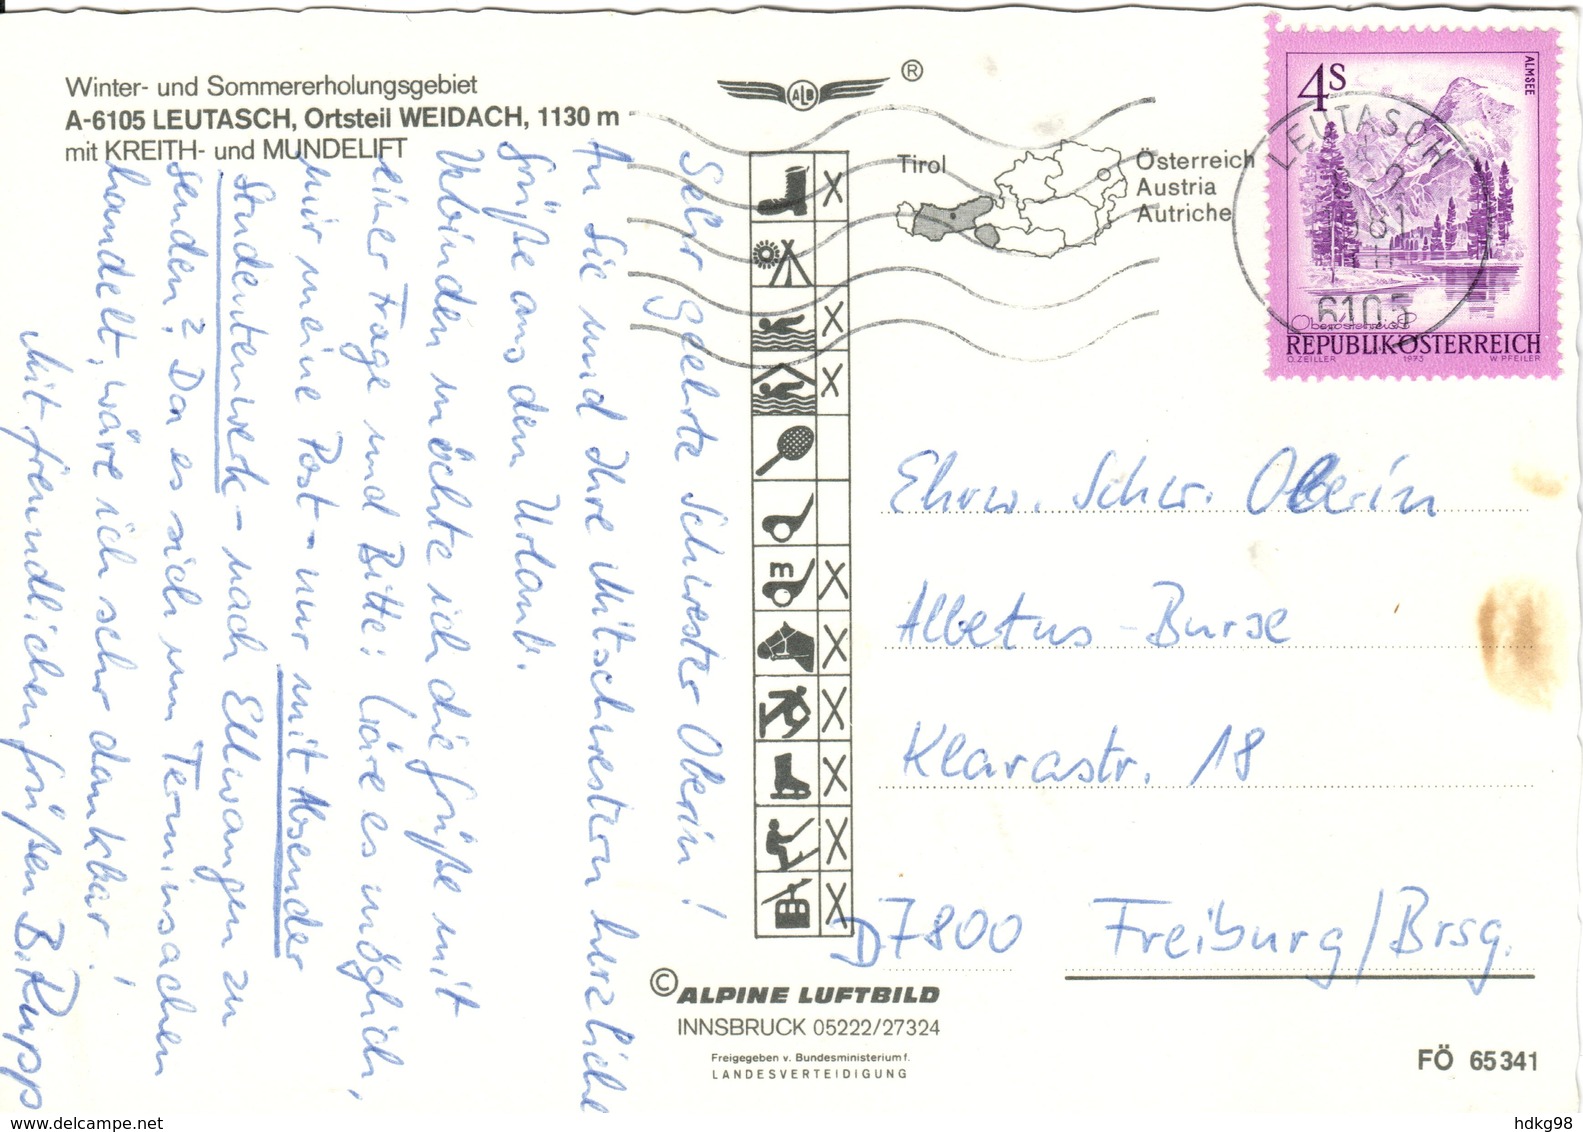 Winter- und Sommererholungsgebiet
A-6105 LEUTASCH, Ortsteil WEIDACH, 1130 m
mit KREITH- und MUNDELIFT
ALB ®
Tirol
Österreich
Austria
Autriche
4S
ALMSEE
Oberösterreich
REPUBLIK ÖSTERREICH
O.ZEILLER 1973 W.PFEILER
LEUTASCH
6105
m
Sehr geehrte Schwester Oberin!
An Sie und Ihre Mitschwestern herzliche
Grüße aus dem Urlaub.
Verbinden möchte ich die Grüße mit
einer Frage und Bitte: Wäre es möglich,
mir meine Post - nur mit Absender
Studentenwerk - nach Ellwangen zu
senden? Da es sich um Terminsachen
handelt, wäre ich sehr dankbar!
Mit freundlichen Grüßen B. Rupp
Ehrw. Schw. Oberin
Albetus-Burse
Klarastr. 18
D 7800 Freiburg/Brsg.
© ALPINE LUFTBILD
INNSBRUCK 05222/27324
Freigegeben v. Bundesministerium f.
LANDESVERTEIDIGUNG
FÖ 65341
hdkg98